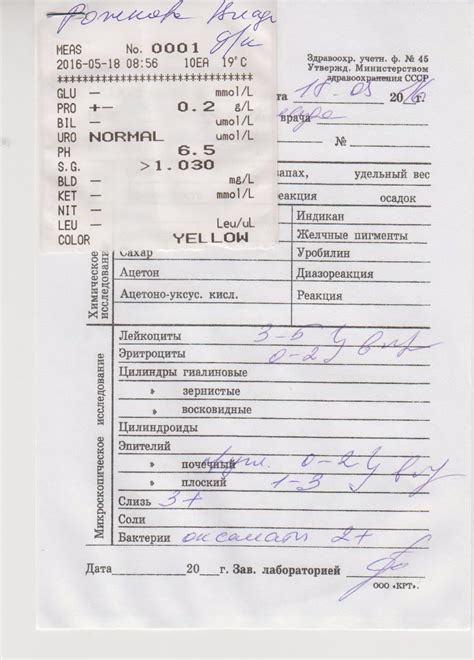 Рожкова Влад
MEAS No. 0001
2016-05-18 08:56 10EA 19°C
******************************
GLU − mmol/L
PRO +− 0.2 g/L
BIL − umol/L
URO NORMAL umol/L
PH 6.5
S.G. >1.030
BLD − mg/L
KET − mmol/L
NIT −
LEU − Leu/uL
COLOR YELLOW
Здравоохр. учетн. ф. № 45
Утвержд. Министерством
здравоохранения СССР
та 18.05 20 16 г.
врача
№
апах, удельный вес
еакция осадок
Индикан
Желчные пигменты
Сахар Уробилин
Ацетон Диазореакция
Ацетоно-уксус. кисл. Реакция
Химическое исследование
Лейкоциты 3-5
Эритроциты 0-2
Цилиндры гиалиновые
» зернистые
» восковидные
Цилиндроиды
Эпителий
» почечный 0-2
» плоский 1-3
Слизь 3+
Соли
Бактерии оксалаты 2+
Микроскопическое исследование
Дата 20 г. Зав. лабораторией
ООО «КРТ».